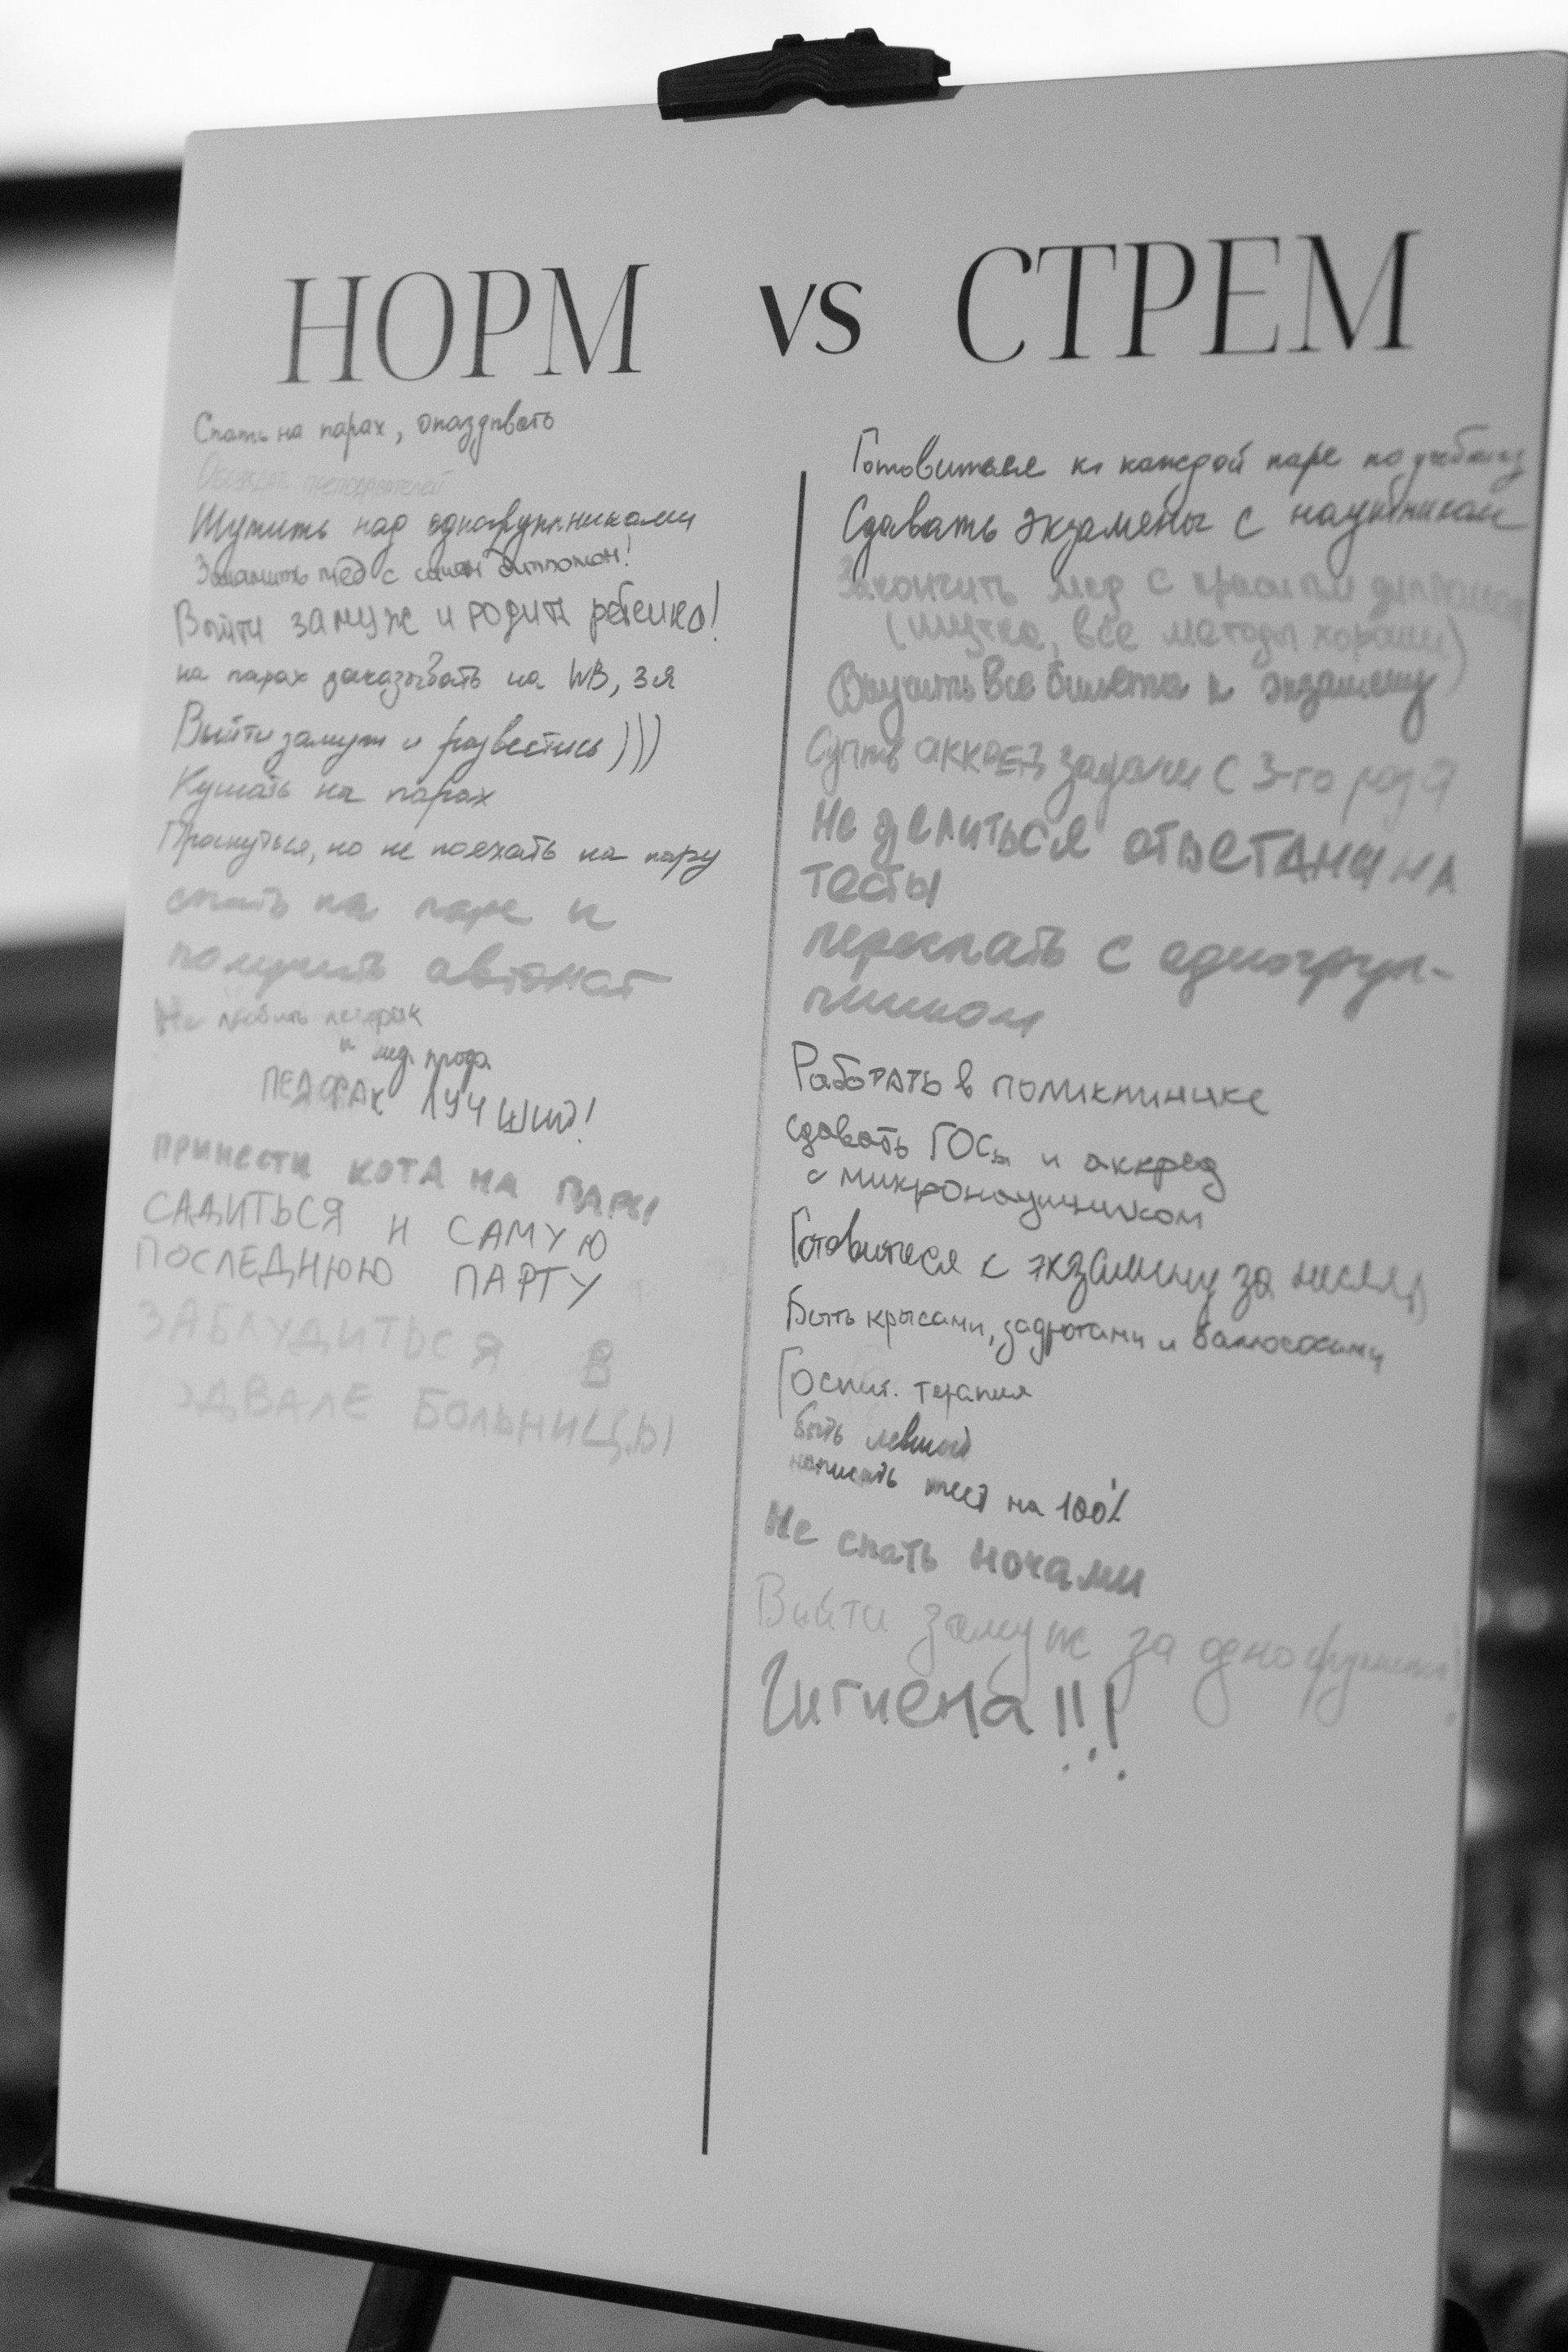 НОРМ vs СТРЕМ
Спать на парах, опаздывать
Обсуждать преподавателей
Шутить над одногруппниками
Закончить мед с синим дипломом!
Выйти замуж и родить ребенка!
на парах заказывать на WB, ЗЯ
Выйти замуж и развестись)))
Кушать на парах
Проснуться, но не поехать на пару
спать на паре и
получить автомат
Не любить педфак
и мед. проф.
ПЕДФАК ЛУЧШИЙ!
ПРИНЕСТИ КОТА НА ПАРЫ
САДИТЬСЯ Н САМУЮ
ПОСЛЕДНЮЮ ПАРТУ
ЗАБЛУДИТЬСЯ В
ПОДВАЛЕ БОЛЬНИЦЫ
Готовиться к каждой паре по учебнику
Сдавать экзамены с наушником
Закончить мед с красным дипломом
(шутка, все методы хороши)
Выучить все билеты к экзамену
аккред задачи с 3-го
Не делиться ответами на
тесты
переспать с одногруп-
пником
Работать в поликлинике
сдавать ГОСы и аккред
с микронаушником
Готовиться к экзамену за месяц
Быть крысами, задротами и
Госпит. терапия
Быть левшой
написать тест на 100%
Не спать ночами
Выйти замуж за одногруппника!
Гигиена!!!